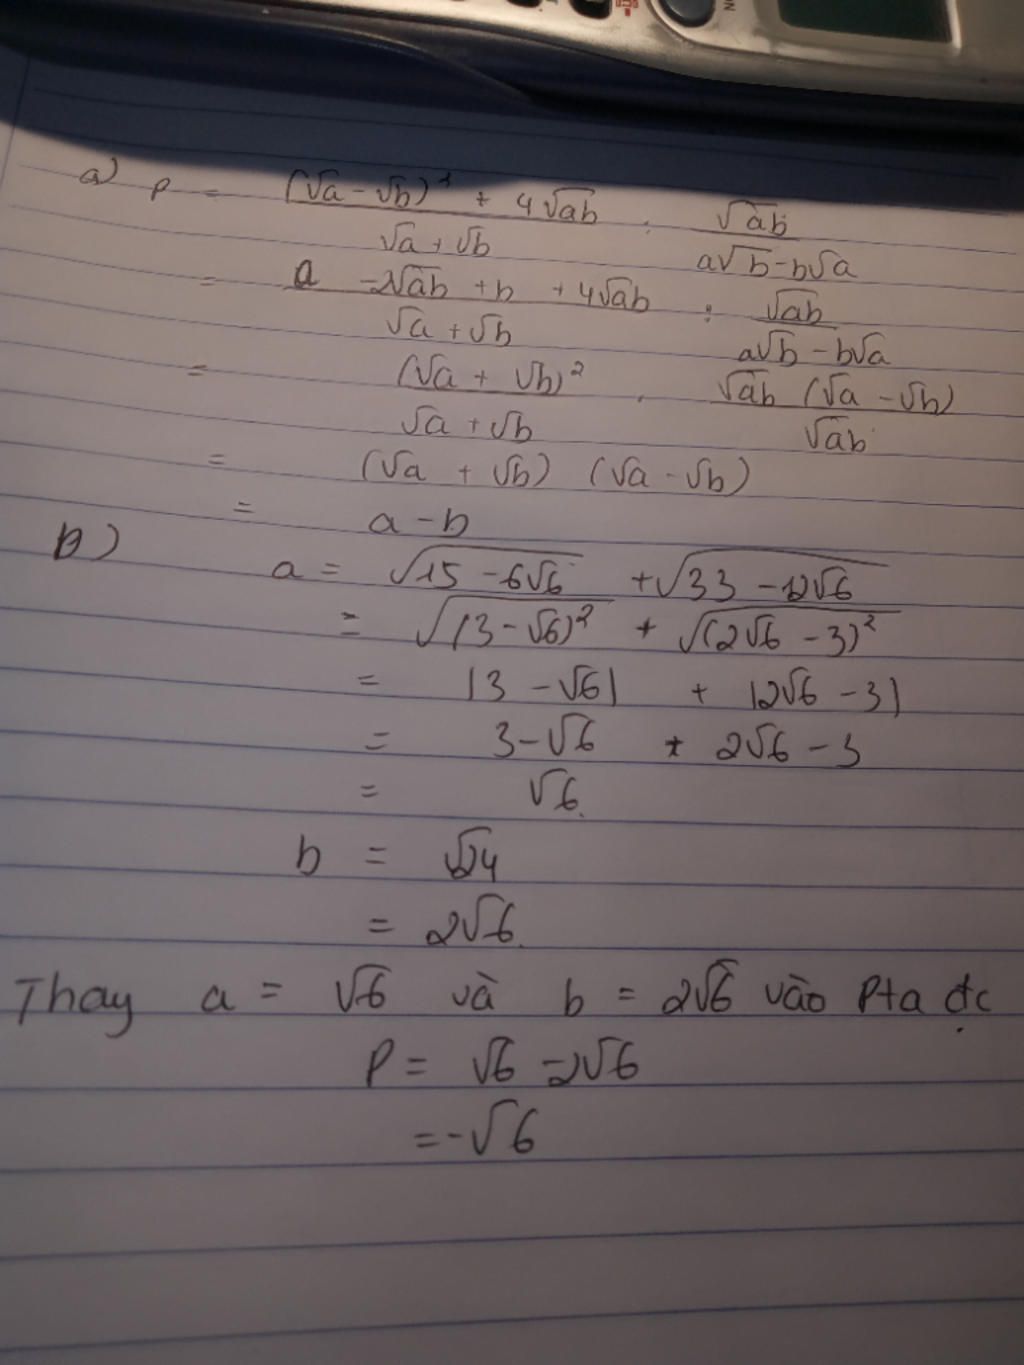 a) P = ((√a - √b)² + 4√ab)/(√a + √b) : √ab/(a√b - b√a)
= (a - 2√ab + b + 4√ab)/(√a + √b) : √ab/(a√b - b√a)
= (√a + √b)²/(√a + √b) . √ab (√a - √b)/√ab
= (√a + √b) (√a - √b)
= a - b
B) a = √(15 - 6√6) + √(33 - 12√6)
= √((3 - √6)²) + √((2√6 - 3)²)
= |3 - √6| + |2√6 - 3|
= 3 - √6 + 2√6 - 3
= √6.
b = √24
= 2√6.
Thay a = √6 và b = 2√6 vào P ta đc
P = √6 - 2√6
= -√6